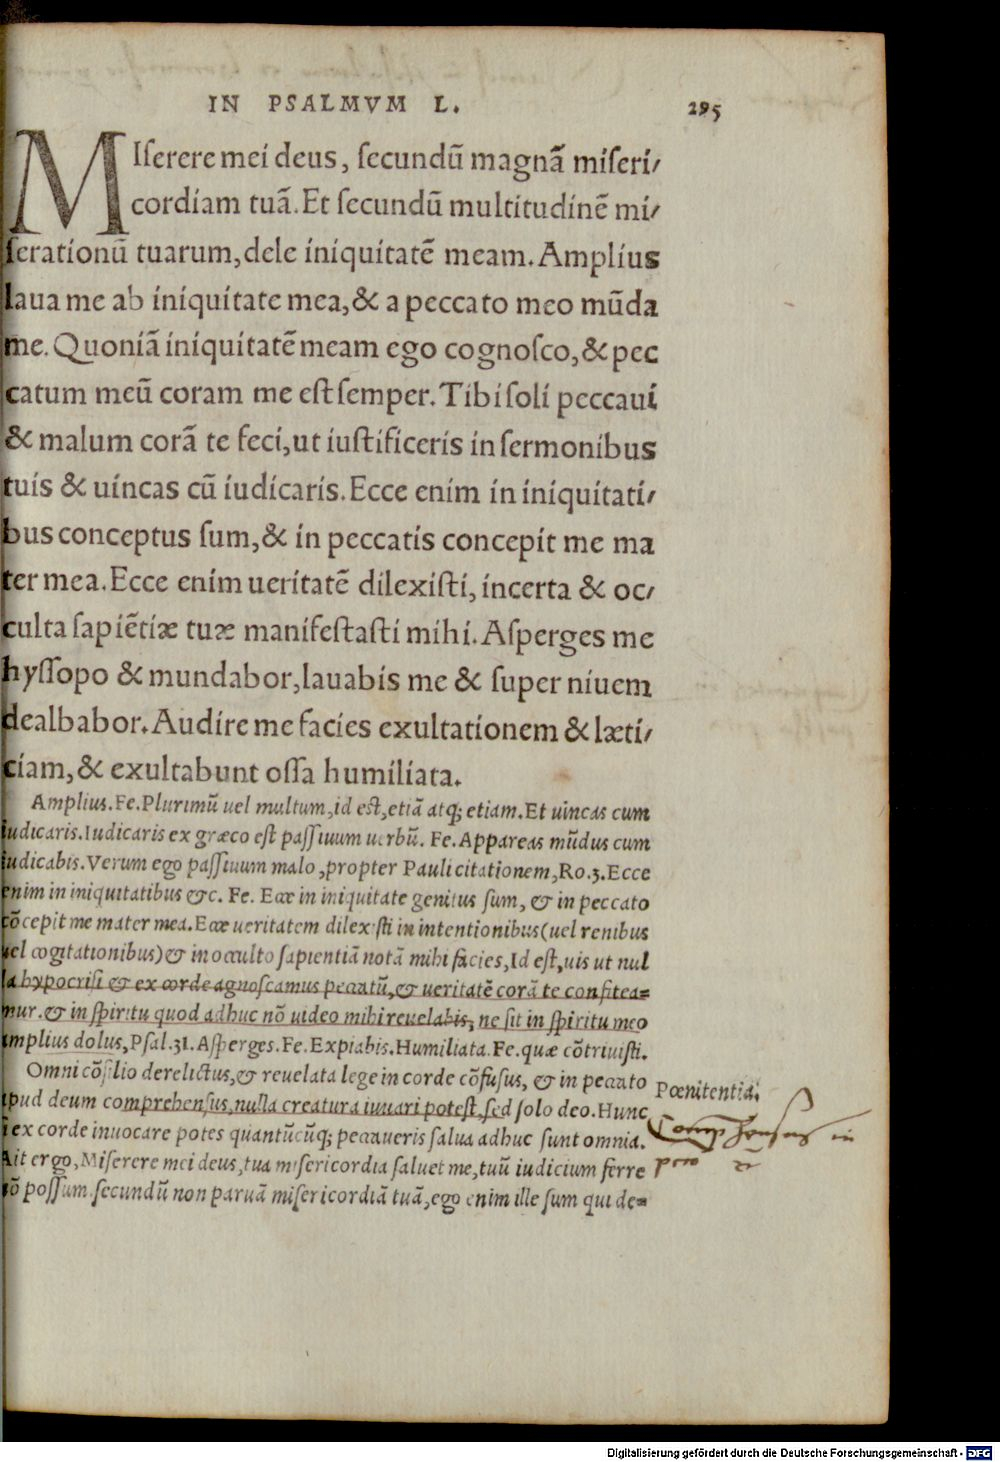 IN PSALMVM L. 295
MIſerere mei deus, ſecundũ magnã miſeri/
cordiam tuã. Et ſecundũ multitudinẽ mi/
ſerationũ tuarum, dele iniquitatẽ meam. Amplius
laua me ab iniquitate mea, & a peccato meo mũda
me. Quoniã iniquitatẽ meam ego cognoſco, & pec
catum meũ coram me eſt ſemper. Tibi ſoli peccaui
& malum corã te feci, ut iuſtificeris in ſermonibus
tuis & uincas cũ iudicaris. Ecce enim in iniquitati/
bus conceptus ſum, & in peccatis concepit me ma
ter mea. Ecce enim ueritatẽ dilexiſti, incerta & oc/
culta ſapiẽtiæ tuæ manifeſtaſti mihi. Aſperges me
hyſſopo & mundabor, lauabis me & ſuper niuem
dealbabor. Audire me facies exultationem & læti/
ciam, & exultabunt oſſa humiliata.
Amplius. Fe. Plurimũ uel multum, id eſt, etiã atq; etiam. Et uincas cum
iudicaris. Iudicaris ex græco eſt paſſiuum uerbũ. Fe. Appareas mũdus cum
iudicabis. Verum ego paſſiuum malo, propter Pauli citationem, Ro. 3. Ecce
enim in iniquitatibus &c. Fe. Ecce in iniquitate genitus ſum, & in peccato
cõcepit me mater mea. Ecce ueritatem dilexiſti in intentionibus (uel renibus
uel cogitationibus) & in occulto ſapientiã notã mihi facies, Id eſt, uis ut nul
la hypocriſi & ex corde agnoſcamus peccatũ, & ueritatẽ corã te confitea=
mur. & in ſpiritu quod adhuc nõ uideo mihi reuelabis, ne ſit in ſpiritu meo
amplius dolus, Pſal. 31. Aſperges. Fe. Expiabis. Humiliata. Fe. quæ cõtriuiſti.
Omni cõſilio derelictus, & reuelata lege in corde cõfuſus, & in peccato
apud deum comprehenſus, nulla creatura iuuari poteſt, ſed ſolo deo. Hunc
ſi ex corde inuocare potes quantũcũq; peccaueris ſalua adhuc ſunt omnia.
Ait ergo, Miſerere mei deus, tua miſericordia ſaluet me, tuũ iudicium ferre
nõ poſſum. ſecundũ non paruã miſericordiã tuã, ego enim ille ſum qui de=
Pœnitentia.
in
Digitalisierung gefördert durch die Deutsche Forschungsgemeinschaft - DFG